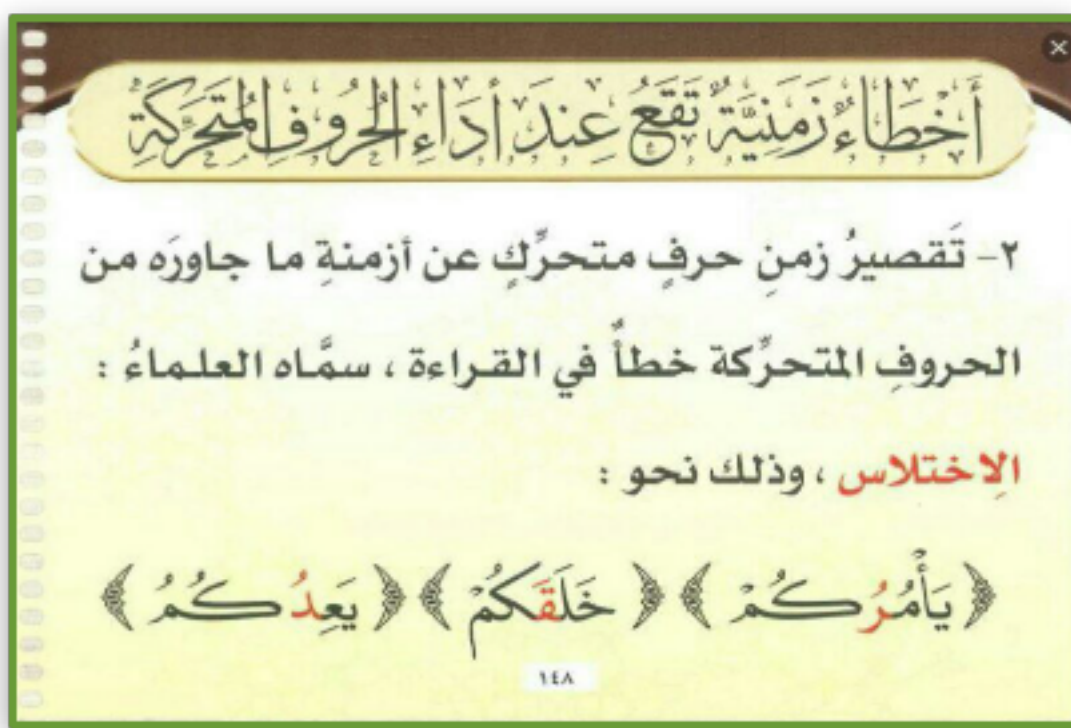 أَخْطَاءٌ زَمَنِيَّةٌ تَقَعُ عِندَ أَدَاءِ الْحُرُوفِ الْمُتَحَرِّكَةِ
٢- تَقصيرُ زمنِ حرفٍ متحرِّكٍ عن أزمنةِ ما جاورَه من
الحروفِ المتحرِّكة خطأٌ في القراءة ، سمَّاه العلماءُ :
الِاختلاس ، وذلك نحو :
﴿ يَأْمُرُكُمْ ﴾ ﴿ خَلَقَكُمْ ﴾ ﴿ يَعِدُكُمُ ﴾
١٤٨